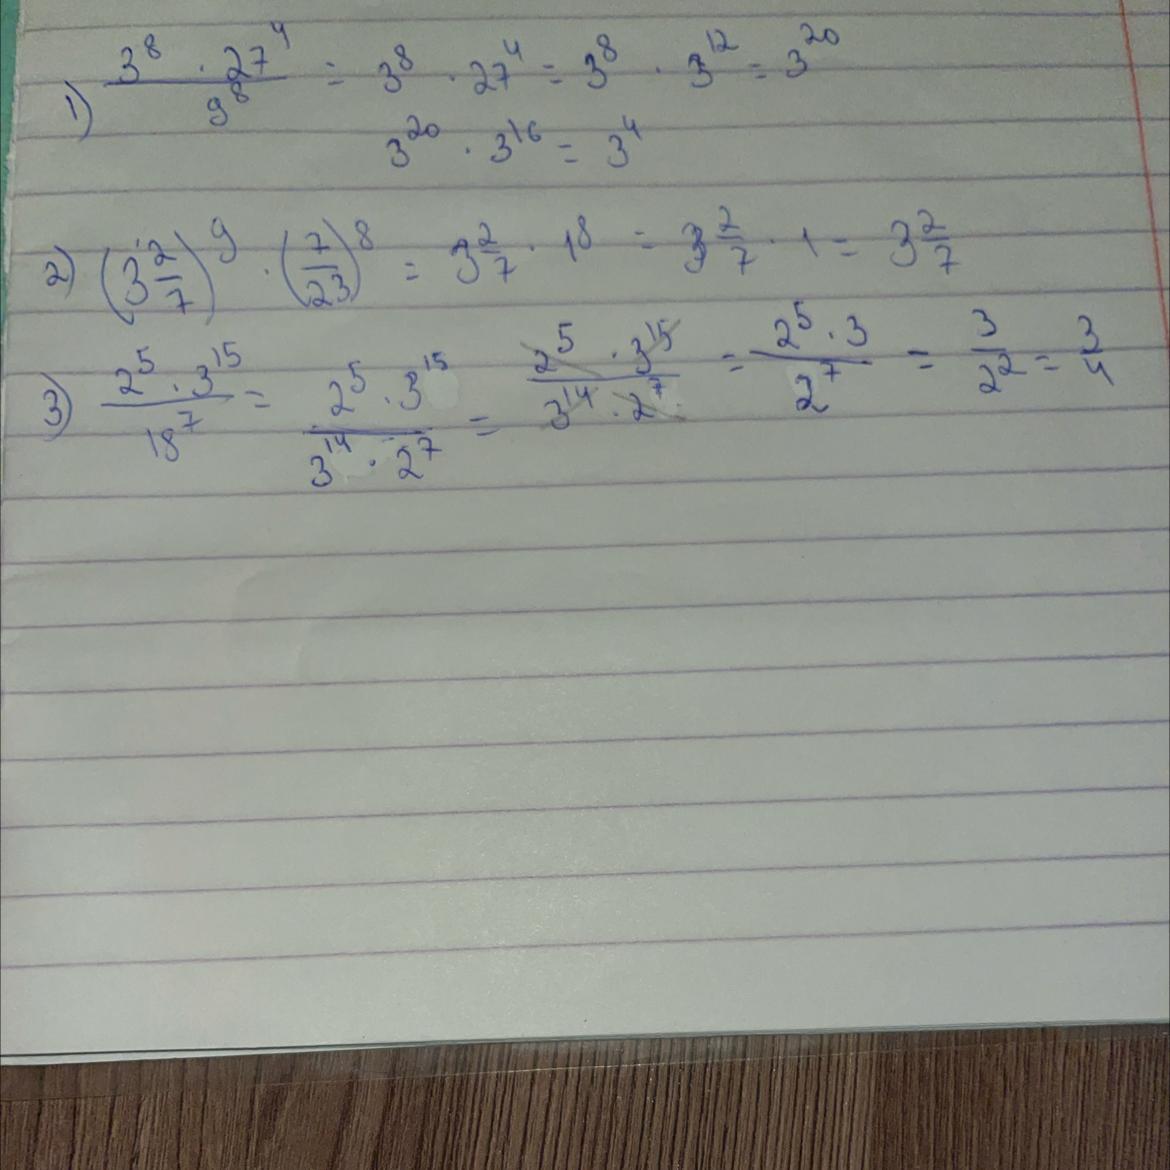 1) \frac{3^8 \cdot 27^4}{9^8} = 3^8 \cdot 27^4 = 3^8 \cdot 3^{12} = 3^{20}
3^{20} \cdot 3^{16} = 3^4
2) \left(3\frac{2}{7}\right)^9 \cdot \left(\frac{7}{23}\right)^8 = 3\frac{2}{7} \cdot 1^8 = 3\frac{2}{7} \cdot 1 = 3\frac{2}{7}
3) \frac{2^5 \cdot 3^{15}}{18^7} = \frac{2^5 \cdot 3^{15}}{3^{14} \cdot 2^7} = \frac{2^5 \cdot 3^{15}}{3^{14} \cdot 2^7} = \frac{2^5 \cdot 3}{2^7} = \frac{3}{2^2} = \frac{3}{4}